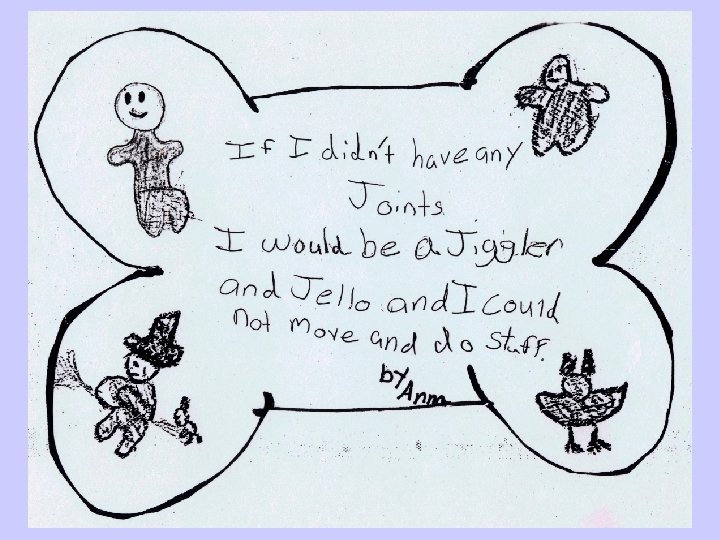 If I didn't have any
Joints
I would be a Jiggler
and Jello and I could
not move and do stuff.
by
Anm